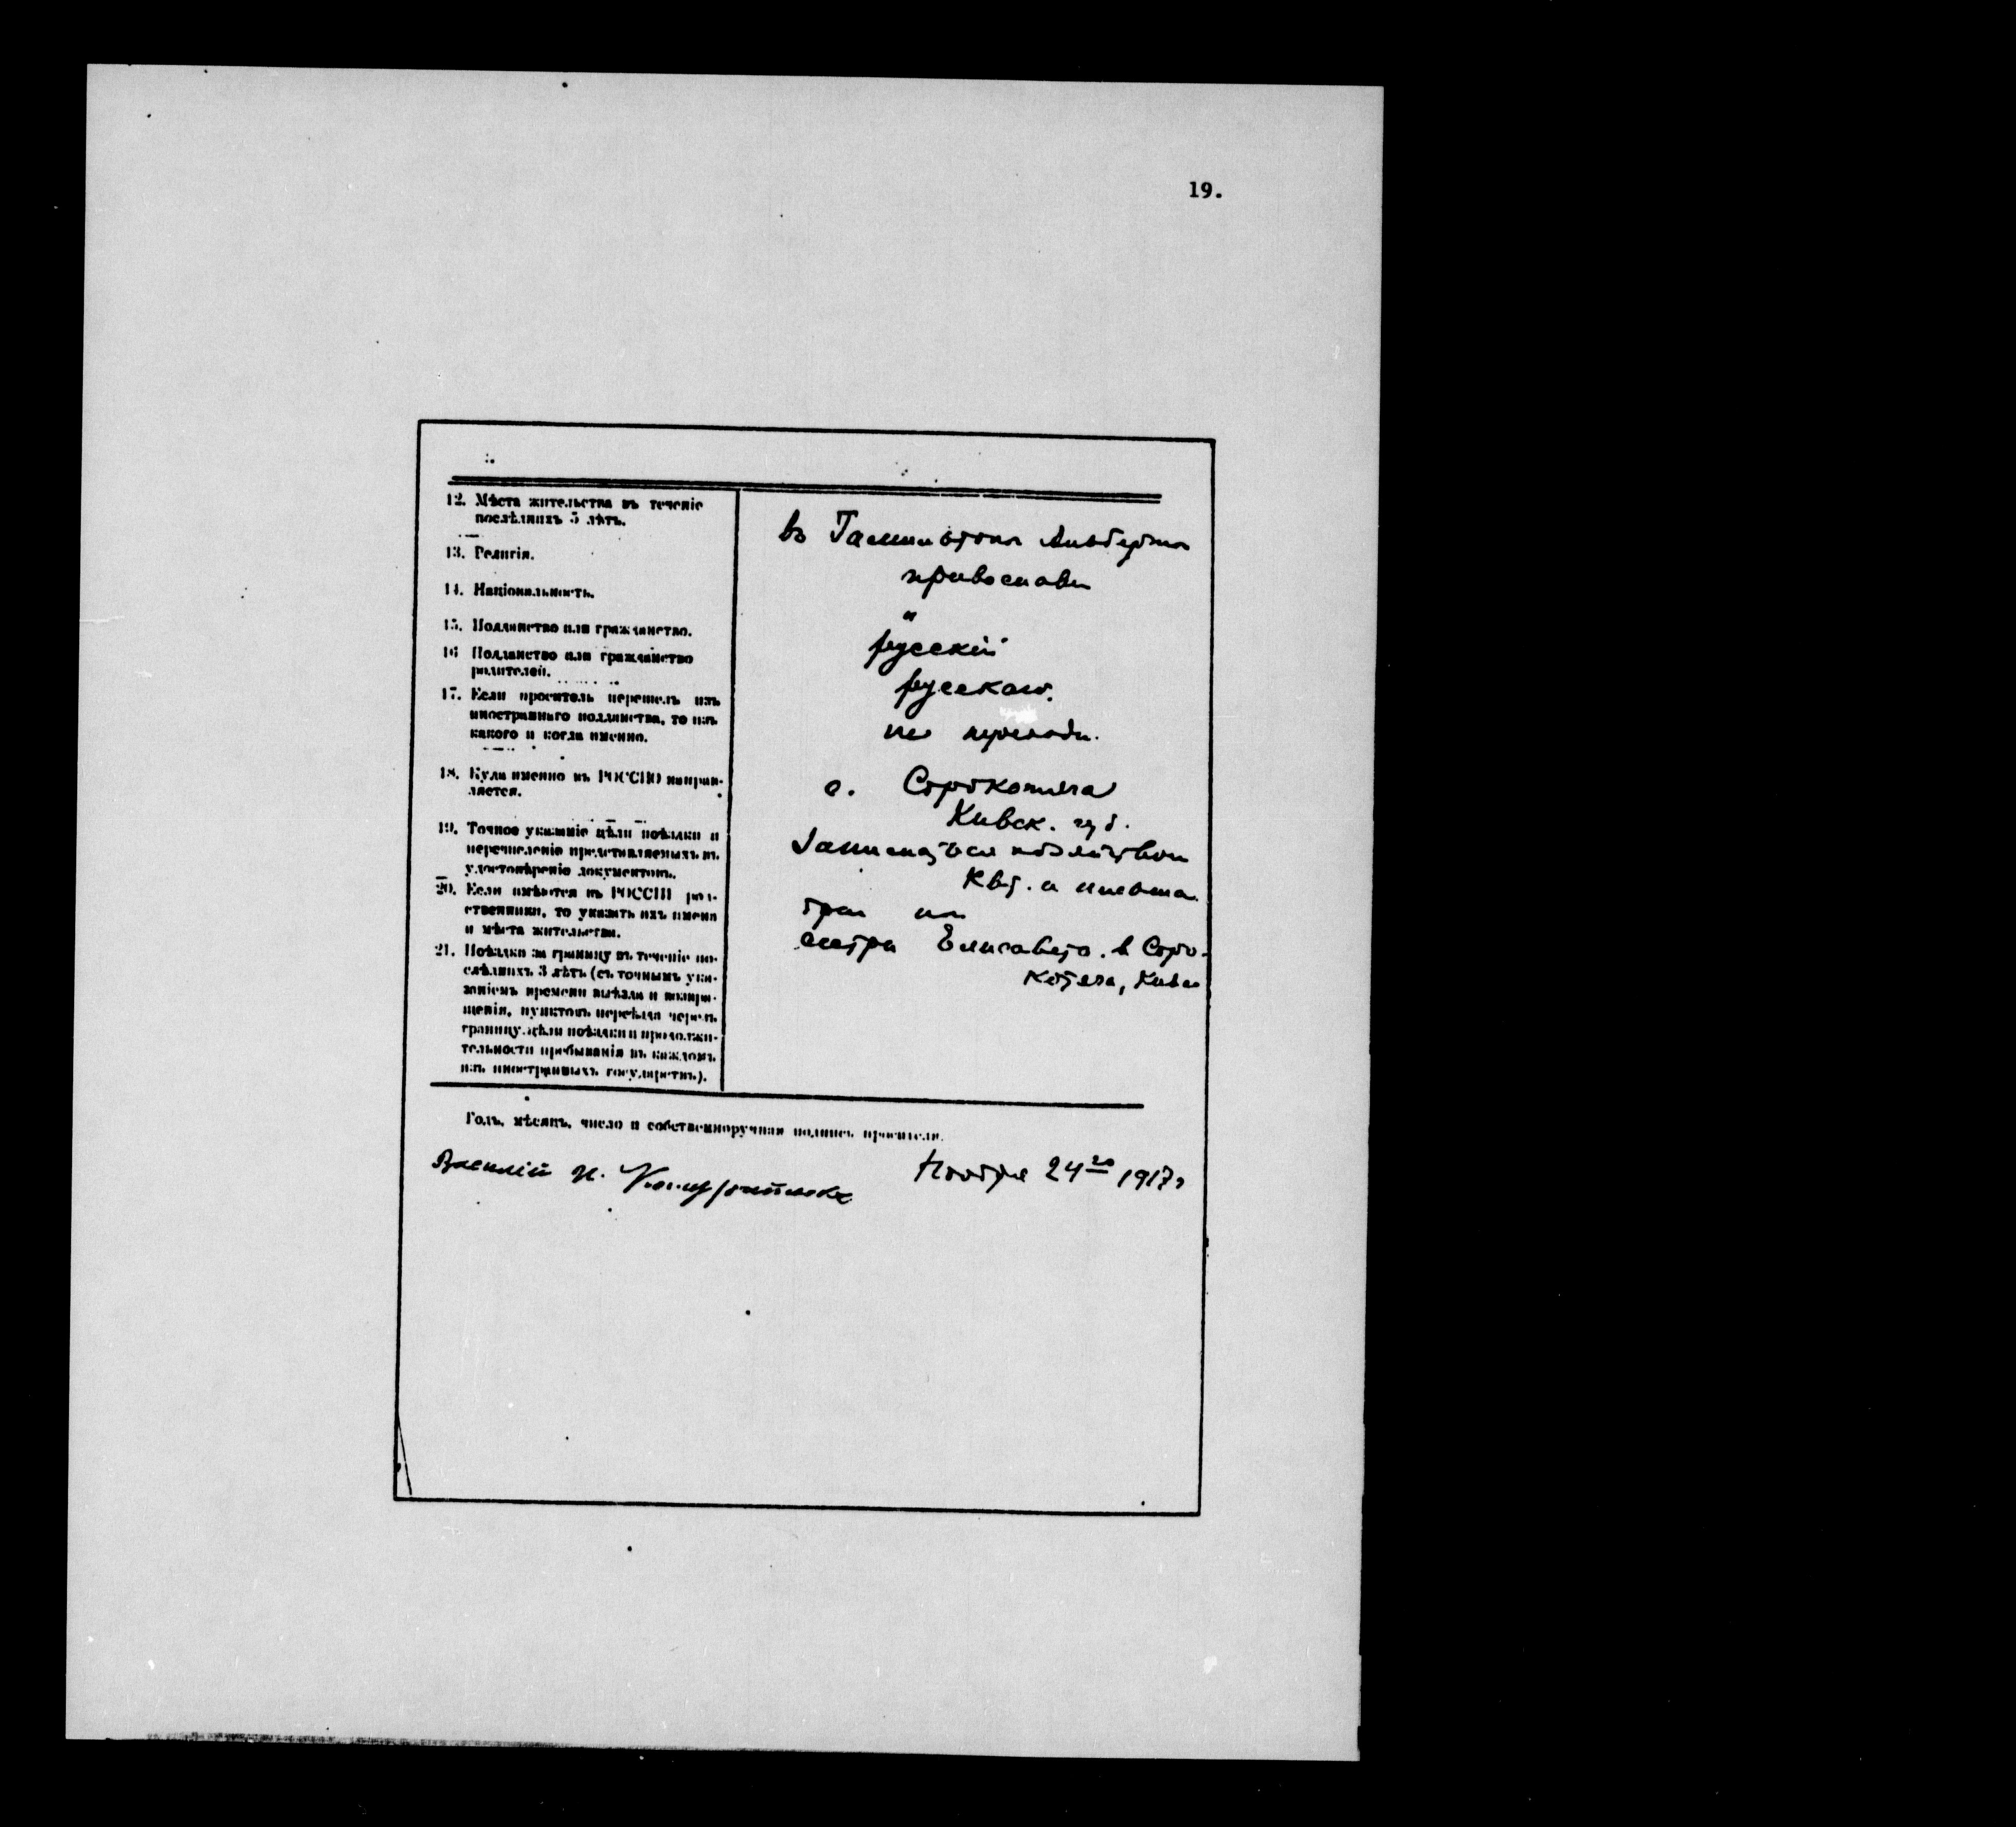 19.
12. Мѣста жительства въ теченіе
послѣднихъ 5 лѣтъ.
в Гамильтонѣ Альберта
13. Религія.
православн
14. Національность.
"
15. Подданство или гражданство.
русскій
16 Подданство или гражданство
родителей.
русскаго.
17. Если проситель перешелъ изъ
иностраннаго подданства, то изъ
какого и когда именно.
не переходи.
18. Куда именно въ РОССІЮ направ-
ляется.
с. Сорокотяга
Киевск. губ.
19. Точное указаніе цѣли поѣздки и
перечисленіе представляемыхъ въ
удостовѣреніе документовъ.
Заниматься хозяйством
Кв. и письма.
20. Если имѣются въ РОССІИ род-
ственники, то указать ихъ имена
и мѣста жительства.
сестра Елисавета. в Соро-
котяга, Киев
21. Поѣздки за границу въ теченіе по-
слѣднихъ 3 лѣтъ (съ точнымъ ука-
заніемъ времени выѣзда и возвра-
щенія, пунктовъ переѣзда черезъ
границу, цѣли поѣздки и продолжи-
тельности пребыванія въ каждомъ
изъ иностранныхъ государствъ).
Годъ, мѣсяцъ, число и собственноручная подпись просителя.
Василій Н.
Ноября 24го 1917г